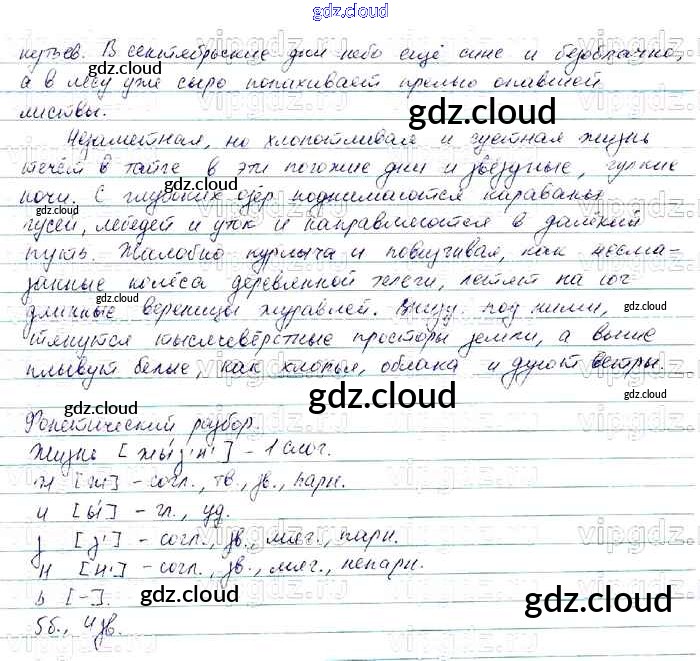 gdz.cloud
кутьев. В сентябрьские дни небо ещё сине и безоблачно,
а в лесу уже сыро попахивает прелью опавшей
листвы.
Незаметная, но хлопотливая и суетная жизнь
течёт в тайге в эти погожие дни и звёздные, гулкие
ночи. С глубоких озёр поднимаются караваны
гусей, лебедей и уток и направляются в далёкий
путь. Жалобно курлыча и повизгивая, как несма-
занные колёса деревенской телеги, летят на юг
длинные вереницы журавлей. Внизу, под ними,
тянутся тысячевёрстные просторы земли, а выше
плывут белые, как хлопья, облака и дуют ветры.
Фонетический разбор.
Жизнь [жы́з'н'] - 1 слог.
ж [ж] - согл., тв., зв., парн.
и [ы́] - гл., уд.
з [з'] - согл., зв., мяг., парн.
н [н'] - согл., зв., мяг., непарн.
ь [-].
5 б., 4 зв.